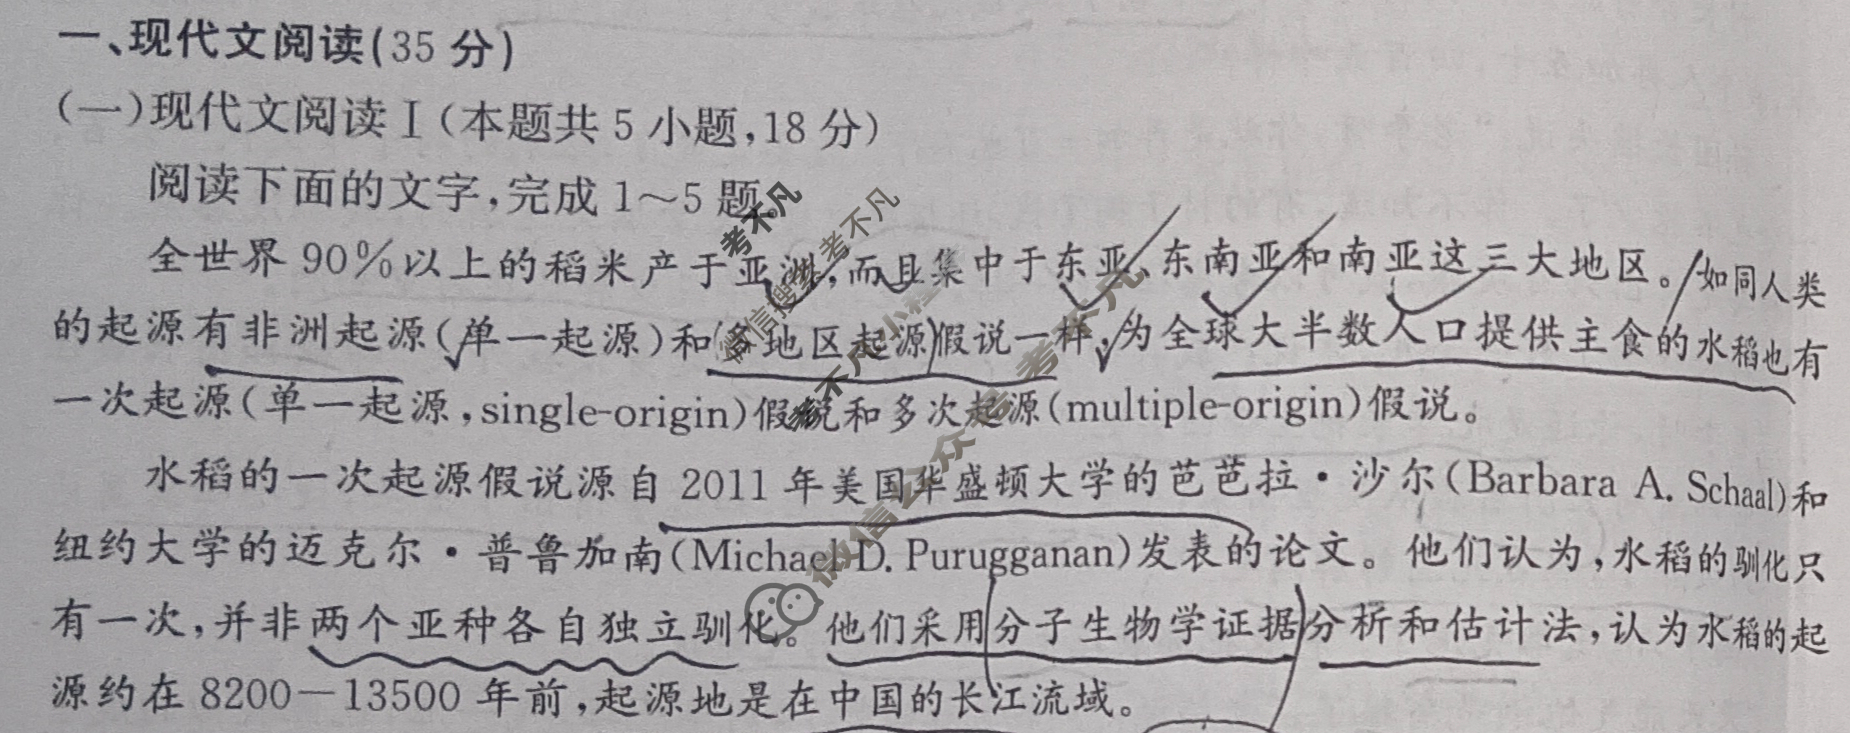 一、现代文阅读(35 分)
(一)现代文阅读Ⅰ(本题共 5 小题,18 分)
阅读下面的文字,完成 1～5 题。
全世界 90%以上的稻米产于亚洲,而且集中于东亚、东南亚和南亚这三大地区。如同人类
的起源有非洲起源(单一起源)和(多地区起源)假说一样,为全球大半数人口提供主食的水稻也有
一次起源(单一起源,single-origin)假说和多次起源(multiple-origin)假说。
水稻的一次起源假说源自 2011 年美国华盛顿大学的芭芭拉·沙尔(Barbara A. Schaal)和
纽约大学的迈克尔·普鲁加南(Michael D. Purugganan)发表的论文。他们认为,水稻的驯化只
有一次,并非两个亚种各自独立驯化。他们采用分子生物学证据分析和估计法,认为水稻的起
源约在 8200—13500 年前,起源地是在中国的长江流域。
考不凡
微信搜索考不凡小程序
微信公众号 考不凡